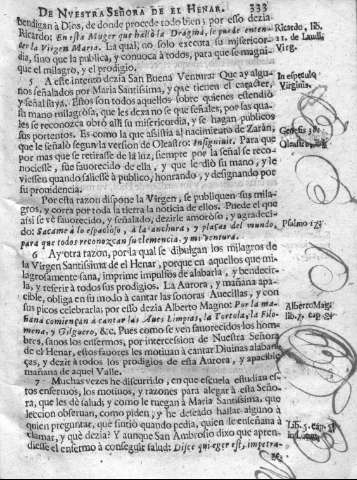 DE NVESTRA SEÑORA DE EL HENAR. 333
bendigan à Dios, de donde procede todo bien; por esso dezia
Ricardo: En esta Muger que hallò la Dragma, se puede enten-
der la Virgen Maria. La qual, no solo executa su misericor-
dia, sino que la publica, y convoca à todos, para que se magni-
que el milagro, y el prodigio.
Ricardo, lib.
11. de Laudi.
Virg.
5 A este intento dezia San Buena Ventura: Que ay algu-
nos señalados por Maria Santissima, y que tienen el caracter,
y señal suya. Estos son todos aquellos sobre quienes estendiò
su mano milagrosa, que les dexa no se què señales, por las qua-
les se reconozca obrò allì su misericordia, y se hagan publicos
sus portentos. Es como la que assistia al nacimiento de Zaràn,
que le señalò segun la version de Oleastro: Insignivit. Para que
por mas que se retirasse de la luz, siempre por la señal se reco-
nociesse, fue favorecido de ella, y que le diò su mano, y le
viessen quando saliesse à publico, honrando, y designando por
su providencia.
In especulo
Virginis.
Genesis 38.
Oleastro,
Por esta razon dispone la Virgen, se publiquen sus mila-
gros, y corra por toda la tierra la noticia de ellos. Puede el que
assi se vè favorecido, y señalado, dezirle amoroso, y agradeci-
do: Sacame à lo espacioso, à la anchura, y plazas del mundo,
para que todos reconozcan su clemencia, y mi ventura.
Psalmo 17.
6 Ay otra razon, por la qual se dibulgan los milagros de
la Virgen Santissima de el Henar, porque en aquellos que mi-
lagrosamente sana, imprime impulsos de alabarla, y bendecir-
la, y referir à todos sus prodigios. La Aurora, y mañana apa-
cible, obliga en su modo à cantar las sonoras Avecillas, y con
sus picos celebrarla; por esso dezia Alberto Magno: Por la ma-
ñana comiençan à cantar las Aves limpias, la Tortola, la Filo-
mena, y Gilguero, &c. Pues como se ven favorecidos los hom-
bres, sanos los enfermos, por intercession de Nuestra Señora
de el Henar, estos favores les motivan à cantar Divinas alaban-
ças, y dezir à todos los prodigios de esta Aurora, y apacible
mañana de aquel Valle.
Alberto Mag.
lib. 7. cap.
7 Muchas vezes he discurrido, en que escuela estudian es-
tos enfermos, los motivos, y razones para alegar à esta Seño-
ra, que les dè salud; y como le ruegan à Maria Santissima, què
leccion observan, como piden; y he deseado hallar alguno à
quien preguntar, què sintiò quando pedia, quien le enseñaba à
clamar, y què dezia? Y aunque San Ambrosio dixo que apren-
diesse el enfermo à conseguir salud: Disce qui eger est, impetra-
re
Lib. 5. cap.
in Lucam.